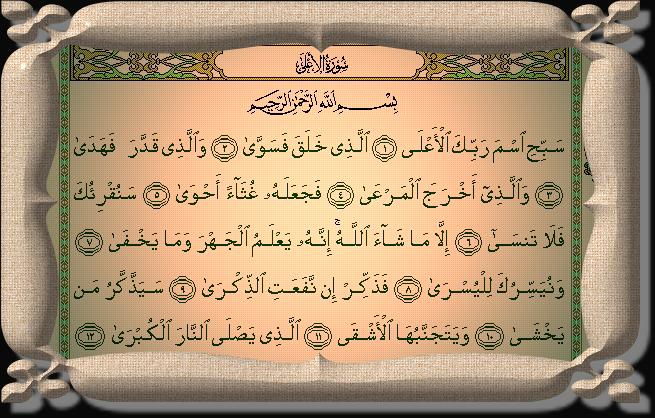 سُورَةُ الأَعْلَىٰ
بِسْمِ ٱللَّهِ ٱلرَّحْمَٰنِ ٱلرَّحِيمِ
سَبِّحِ ٱسْمَ رَبِّكَ ٱلْأَعْلَى ١ ٱلَّذِى خَلَقَ فَسَوَّىٰ ٢ وَٱلَّذِى قَدَّرَ فَهَدَىٰ
٣ وَٱلَّذِىٓ أَخْرَجَ ٱلْمَرْعَىٰ ٤ فَجَعَلَهُۥ غُثَآءً أَحْوَىٰ ٥ سَنُقْرِئُكَ
فَلَا تَنسَىٰٓ ٦ إِلَّا مَا شَآءَ ٱللَّهُ ۚ إِنَّهُۥ يَعْلَمُ ٱلْجَهْرَ وَمَا يَخْفَىٰ ٧
وَنُيَسِّرُكَ لِلْيُسْرَىٰ ٨ فَذَكِّرْ إِن نَّفَعَتِ ٱلذِّكْرَىٰ ٩ سَيَذَّكَّرُ مَن
يَخْشَىٰ ١٠ وَيَتَجَنَّبُهَا ٱلْأَشْقَى ١١ ٱلَّذِى يَصْلَى ٱلنَّارَ ٱلْكُبْرَىٰ ١٢